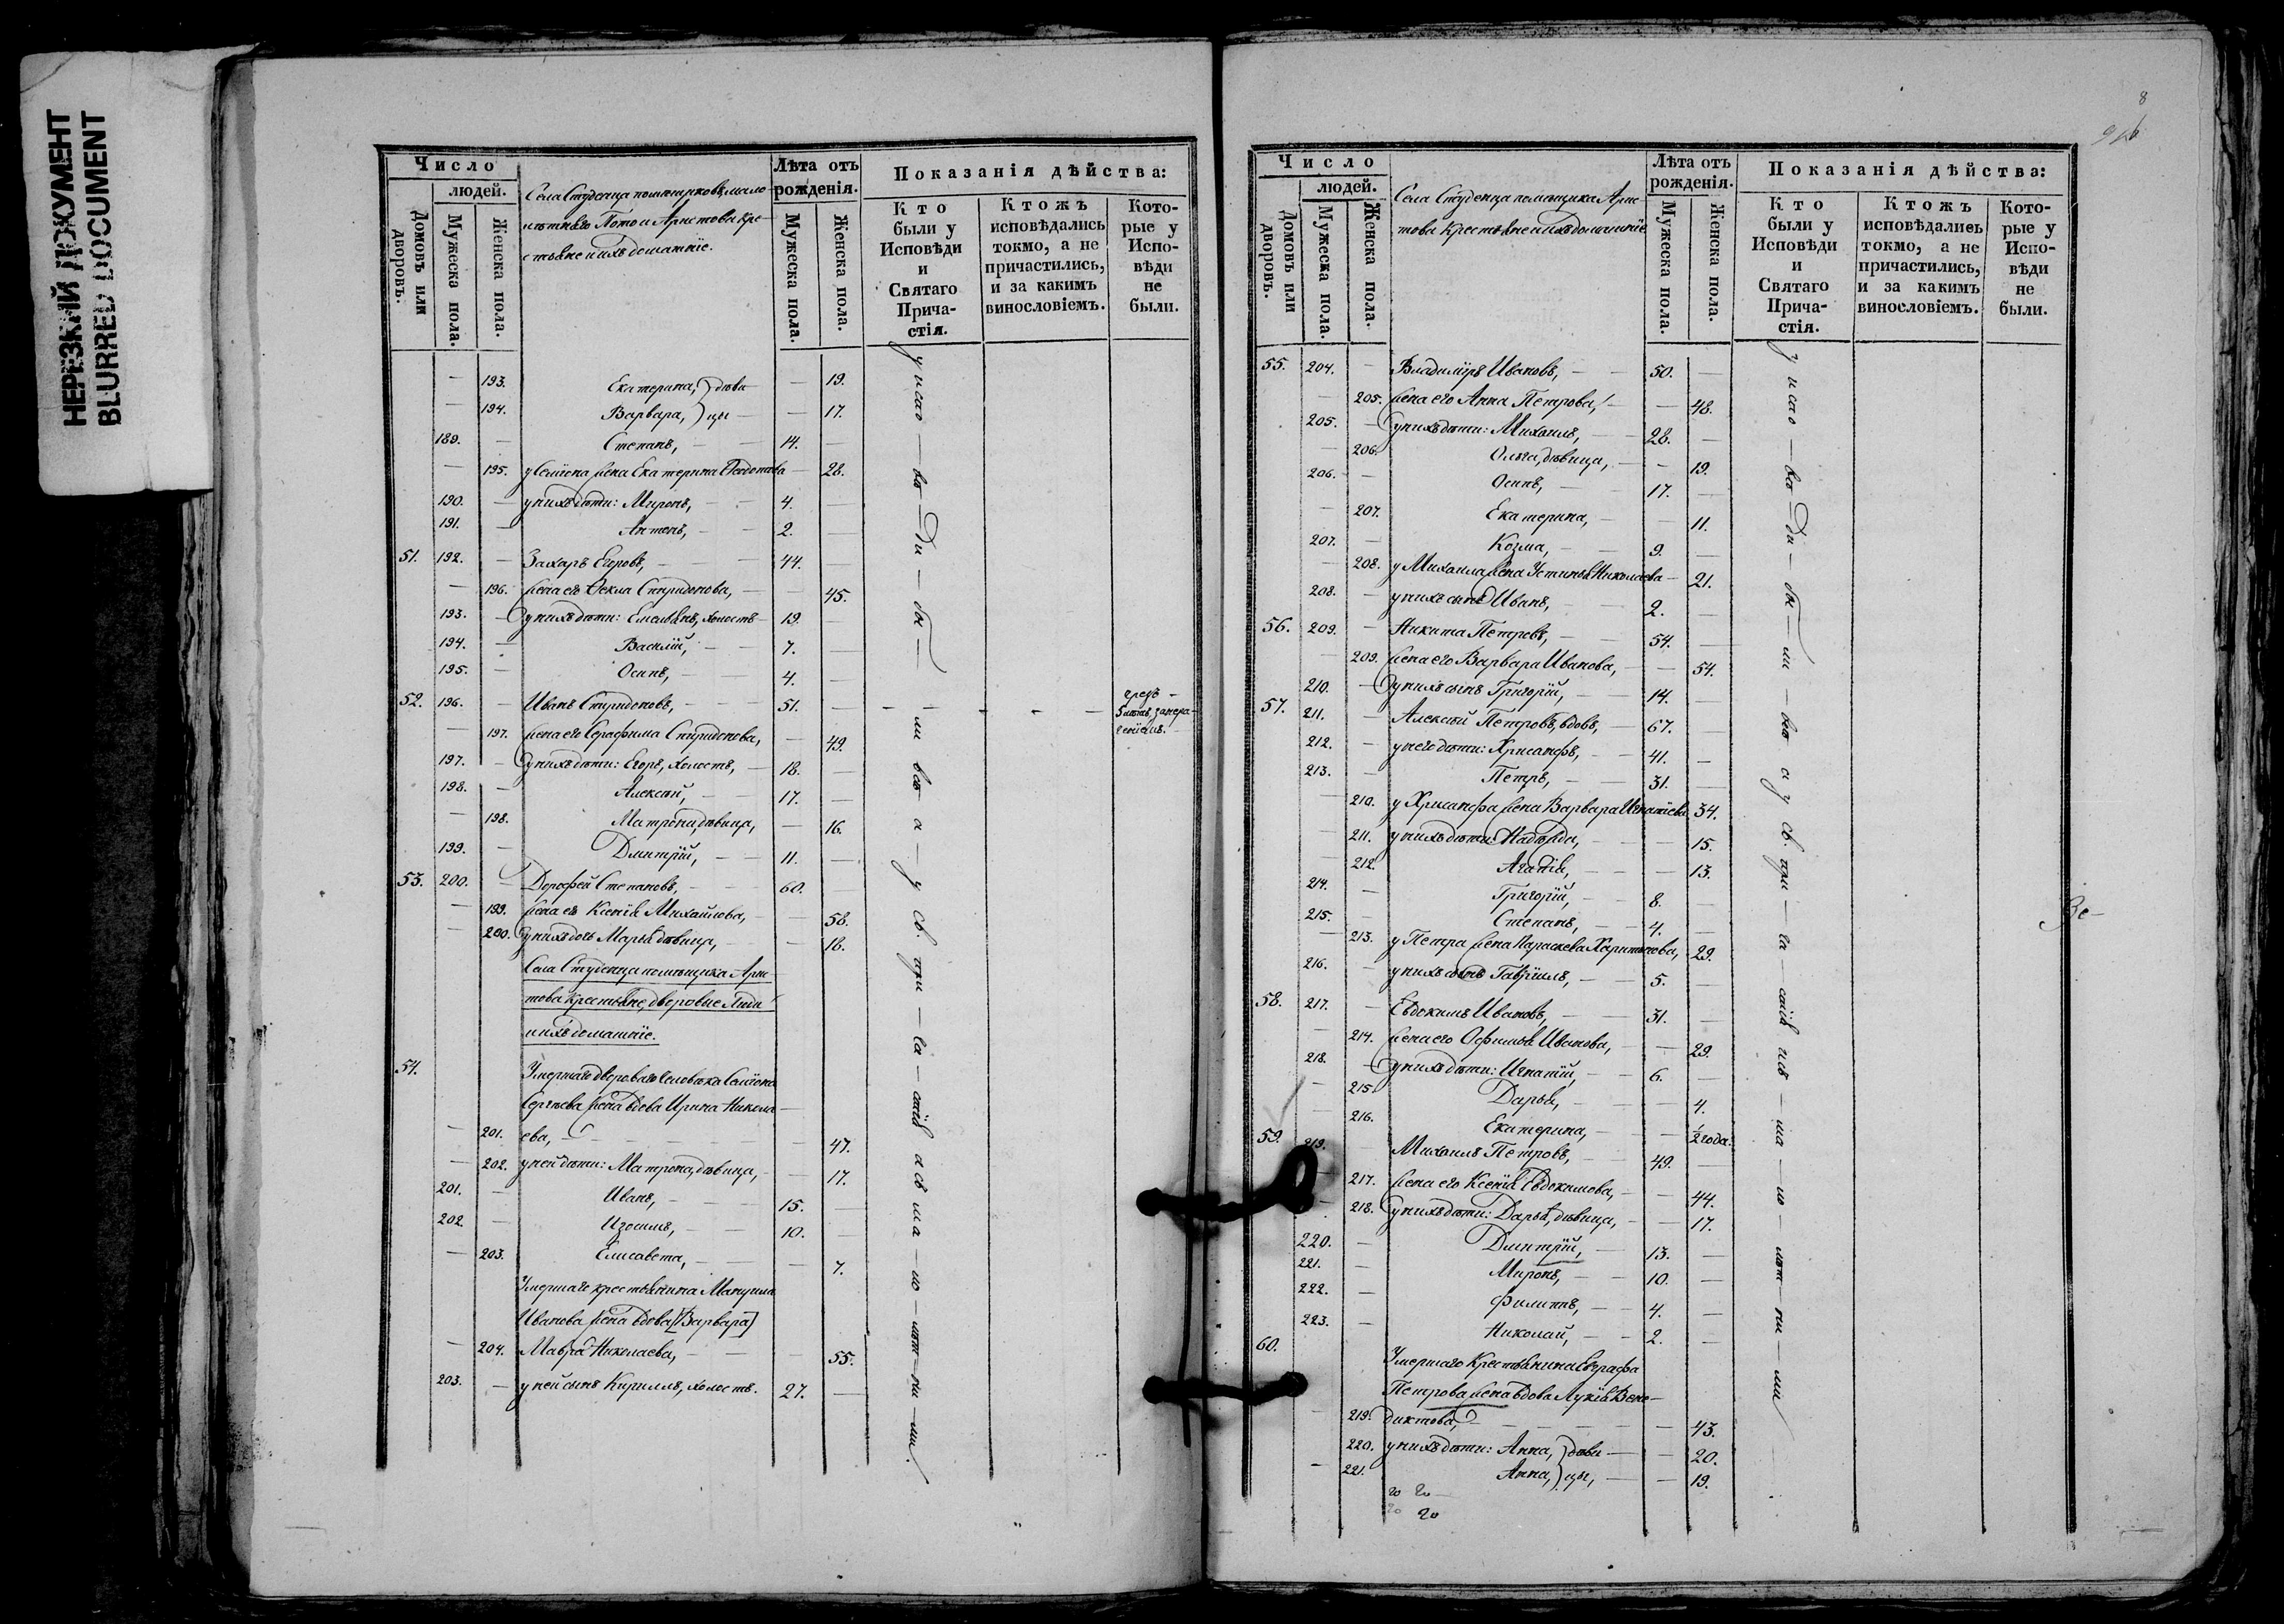 НЕРЕЗКИЙ ДОКУМЕНТ
BLURRED DOCUMENT
Число
людей.
Домовъ или дворовъ.
Мужеска пола.
Женска пола.
Села Студенца помѣщиковъ мало-
лѣтняго Пото и Аристова кре-
стьяне и ихъ домашніе.
Лѣта отъ рожденія.
Мужеска пола.
Женска пола.
Показанія дѣйства:
Кто были у Исповѣди и Святаго Прича-стія.
Ктожъ исповѣдались токмо, а не причастились, и за какимъ винословіемъ.
Кото-рые у Испо-вѣди не были.
— 193. Екатерина, } дѣви — 19.
— 194. Варвара, } цы — 17.
189. — Степанъ, 14. —
— 195. у Семіона жена Екатерина Ѳеодотова — 28.
190. — у нихъ дѣти: Миронъ, 4. —
191. — Антонъ, 2. —
51. 192. — Захаръ Егоровъ, 44. —
— 196. жена его Ѳекла Спиридонова, — 45.
193. — у нихъ дѣти: Емельянъ, холостъ 19. —
194. — Василій, 7. —
195. — Осипъ, 4. —
52. 196. — Иванъ Спиридоновъ, 51. —
5 лѣтъ, за нера-
деніемъ.
— 197. жена его Серафима Спиридонова, — 49.
197. — у нихъ дѣти: Егоръ, холостъ, 18. —
198. — Алексѣй, 17. —
— 198. Матрона, дѣвица, — 16.
199. — Дмитрій, 11. —
53. 200. — Дорофей Степановъ, 60. —
— 199. жена его Ксенія Михайлова, — 58.
— 200. у нихъ дочь Марья дѣвица, — 18.
Села Студенца помѣщика Арис-
това крестьяне, дворовые люди
и ихъ домашніе.
54. Умершаго двороваго человѣка Семіона
Сергѣева жена вдова Ирина Никола-
— 201. ева, — 47.
— 202. у ней дѣти: Матрона, дѣвица, — 17.
201. — Иванъ, 15. —
202. — Изосимъ, 10. —
— 203. Елисавета, — 7.
Умершаго крестьянина Мануила
Иванова жена вдова [Варвара]
— 204. Мавра Николаева, — 55.
203. — у ней сынъ Кириллъ, холостъ. 27. —
у испо — вѣ — ди — бы — ли вѣ а — у св. при — ча — стія
8
Число
людей.
Домовъ или дворовъ.
Мужеска пола.
Женска пола.
Села Студенца помѣщика Арис-
това крестьяне и ихъ домашніе
Лѣта отъ рожденія.
Мужеска пола.
Женска пола.
Показанія дѣйства:
Кто были у Исповѣди и Святаго Прича-стія.
Ктожъ исповѣдались токмо, а не причастились, и за какимъ винословіемъ.
Кото-рые у Испо-вѣди не были.
55. 204. — Владиміръ Ивановъ, 50. —
— 205. жена его Анна Петрова, — 48.
205. — у нихъ дѣти: Михаилъ, 28. —
— 206. Ольга, дѣвица, — 19.
206. — Осипъ, 17. —
— 207. Екатерина, — 11.
207. — Козма, 9. —
— 208. у Михаила жена Устинья Николаева — 21.
208. — у нихъ сынъ Иванъ, 2. —
56. 209. — Никита Петровъ, 54. —
— 209. жена его Варвара Иванова, — 54.
210. — у нихъ сынъ Григорій, 14. —
57. 211. — Алексѣй Петровъ, вдовъ, 67. —
212. — у него дѣти: Хрисанфъ, 41. —
213. — Петръ, 31. —
— 210. у Хрисанфа жена Варвара Игнатіева 34.
— 211. у нихъ дѣти: Надежда, — 15.
— 212. Агафія, — 13.
214. — Григорій, 8. —
215. — Степанъ, 4. —
— 213. у Петра жена Параскева Харитонова, 29.
216. — у нихъ сынъ Гавріилъ, 5. —
58. 217. — Евдокимъ Ивановъ, 31. —
— 214. жена его Офимья Иванова, — 29.
218. — у нихъ дѣти: Игнатій, 6. —
— 215. Дарья, — 4.
— 216. Екатерина, — 1/2 года.
59. 219. — Михаилъ Петровъ, 49. —
— 217. жена его Ксенія Евдокимова, — 44.
— 218. у нихъ дѣти: Дарья, дѣвица, — 17.
220. — Дмитрій, 13. —
221. — Миронъ, 10. —
222. — Филиппъ, 4. —
223. — Николай, 2. —
60. Умершаго крестьянина Евграфа
Петрова жена вдова Лукія Вене-
— 219. диктова, — 43.
— 220. у нихъ дѣти: Анна, } дѣви — 20.
— 221. Анна, } цы, — 19.
у испо — вѣ — ди — бы — ли — вѣ а у св. при — ча — стія